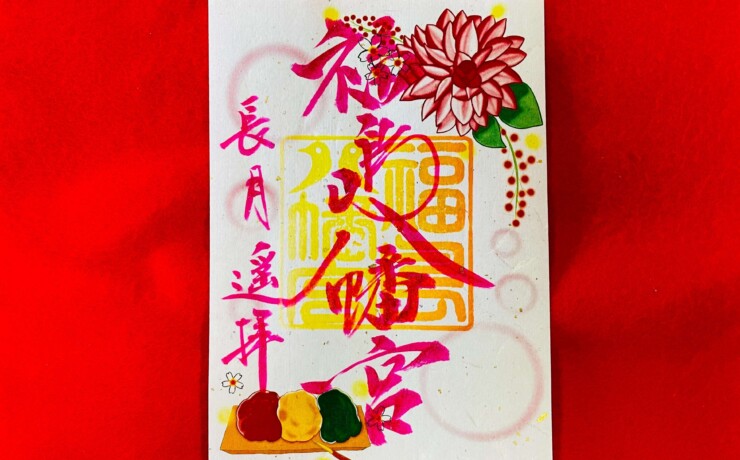 福島八幡宮
長月遥拝
福島
八幡宮